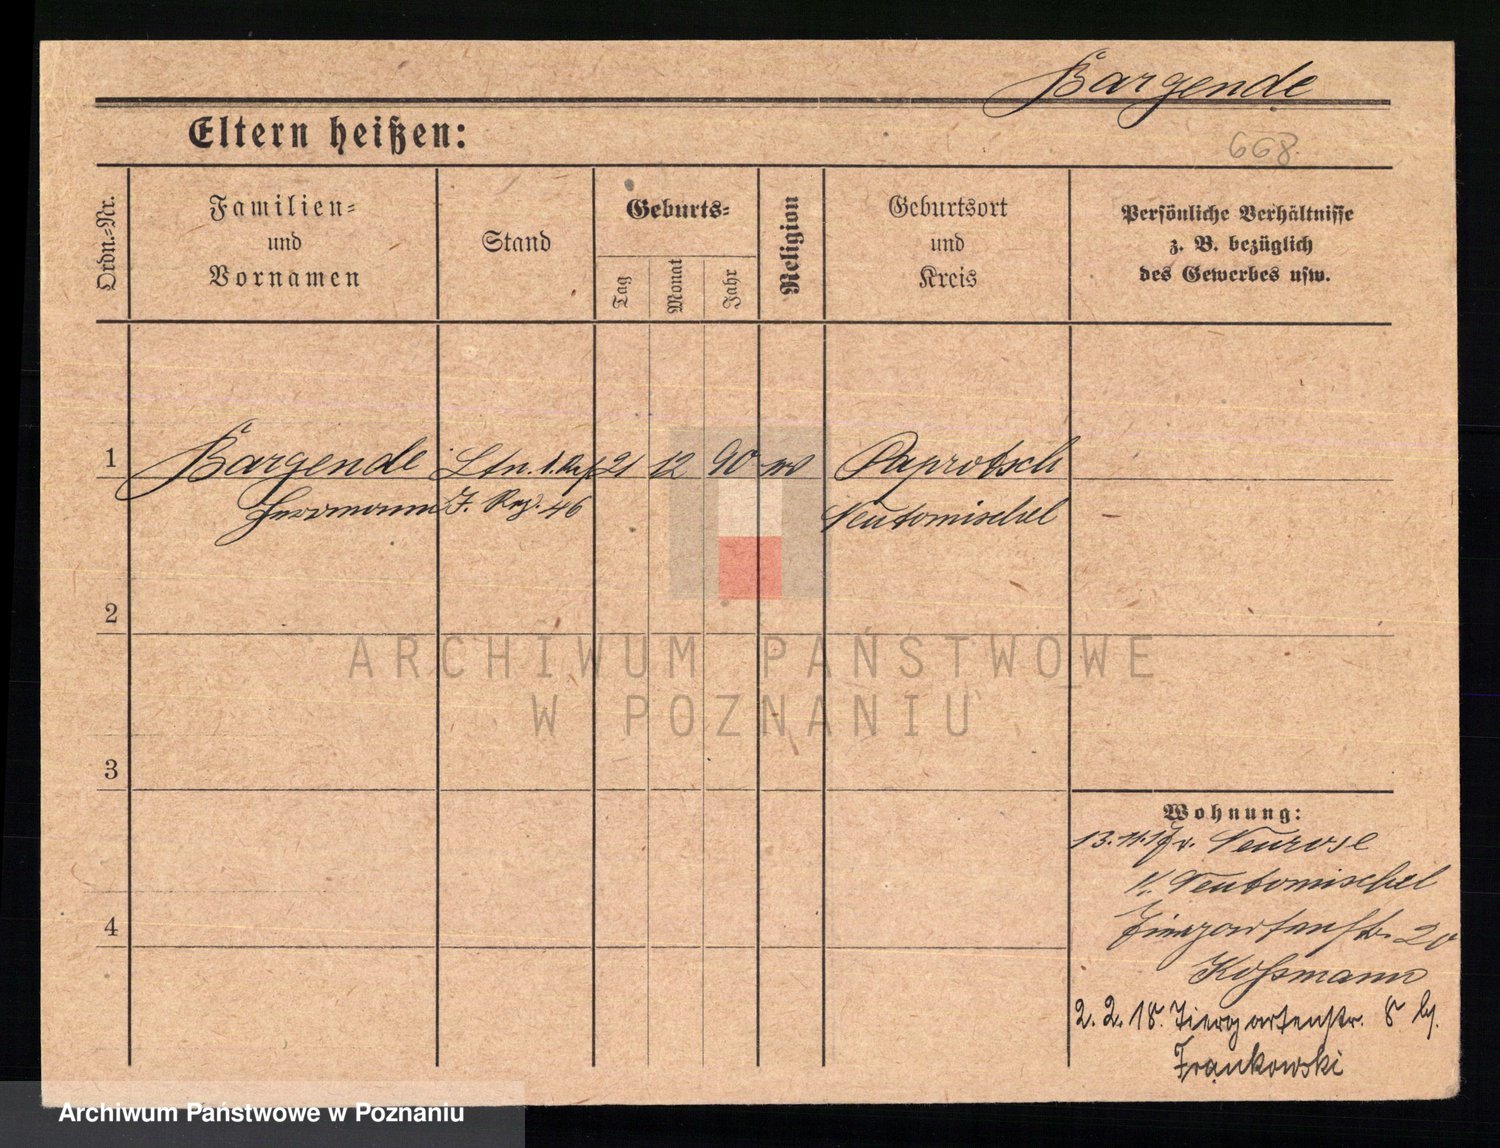 Bargende
Eltern heißen:
668.
Ordn.-Nr.
Familien-
und
Vornamen
Stand
Geburts-
Tag
Monat
Jahr
Religion
Geburtsort
und
Kreis
Persönliche Verhältnisse
z. B. bezüglich
des Gewerbes usw.
1
Bargende Ltn. 21 12 90 Paprotsch
Herrmann 46 Neutomischel
2
ARCHIWUM PAŃSTWOWE
W POZNANIU
3
Wohnung:
13.11.17 v. Neurose
Neutomischel
Tiergartenstr. 20
Koßmann
4
2. 2. 18. Tiergartenstr. 8 b/.
Frankowski
Archiwum Państwowe w Poznaniu